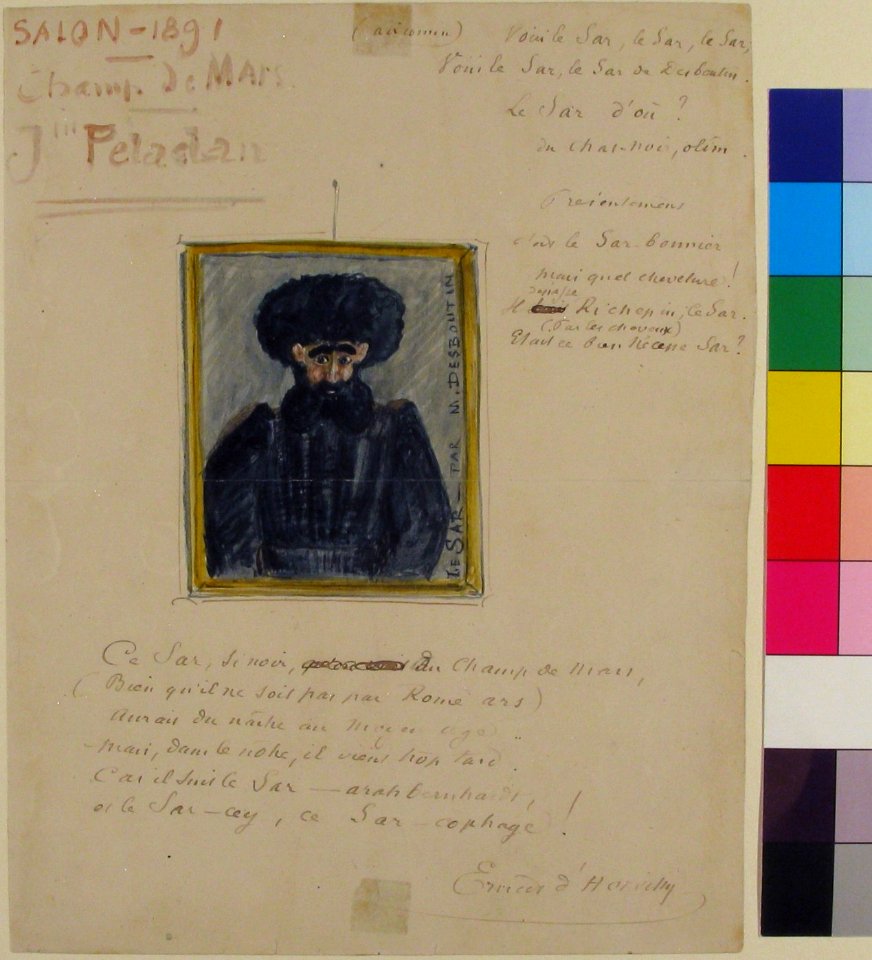 SALON - 1891
Champ De MArs.
Jin Peladan
Voici le Sar, le Sar, le Sar,
Voici le Sar, le Sar de Desboutin.
Le Sar d'où ?
du chat-noir, olim.
le Sar bonnier
mais quel chevelure !
depasse
Il Richepin, le Sar.
(Par les cheveux)
Etait ce bien nécesse Sar ?
LE SAR - PAR M. DESBOUTIN
Ce Sar, si noir, du Champ de Mars,
(Bien qu'il ne soit pas par Rome ars)
Aurait du naître au moyen age ..
mais, dans le notre, il vient trop tard.
Car il suit le Sar — arah bernhardt, !
et le Sar-cey, ce Sar-cophage !
Ernest d'Hervilly